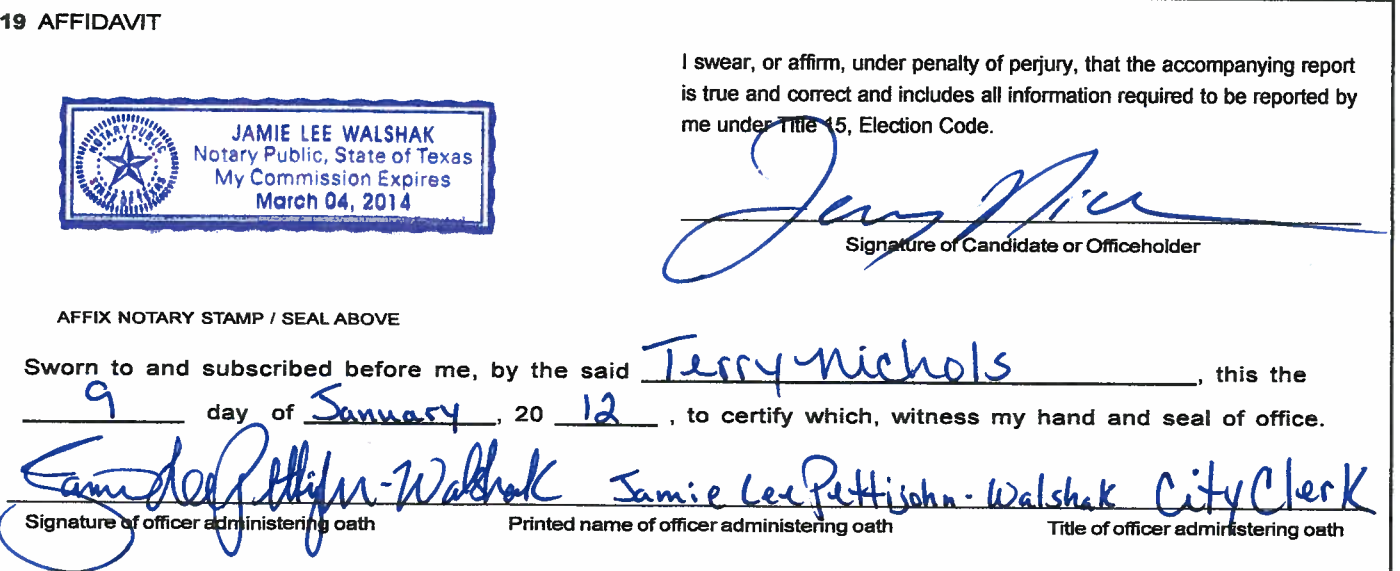 19 AFFIDAVIT
I swear, or affirm, under penalty of perjury, that the accompanying report
is true and correct and includes all information required to be reported by
me under Title 15, Election Code.
NOTARY PUBLIC
STATE OF TEXAS
JAMIE LEE WALSHAK
Notary Public, State of Texas
My Commission Expires
March 04, 2014
Signature of Candidate or Officeholder
AFFIX NOTARY STAMP / SEAL ABOVE
Sworn to and subscribed before me, by the said Terry Nichols, this the
9 day of January, 20 12, to certify which, witness my hand and seal of office.
Jamie Lee Pettijohn-Walshak Jamie Lee Pettijohn-Walshak City Clerk
Signature of officer administering oath Printed name of officer administering oath Title of officer administering oath